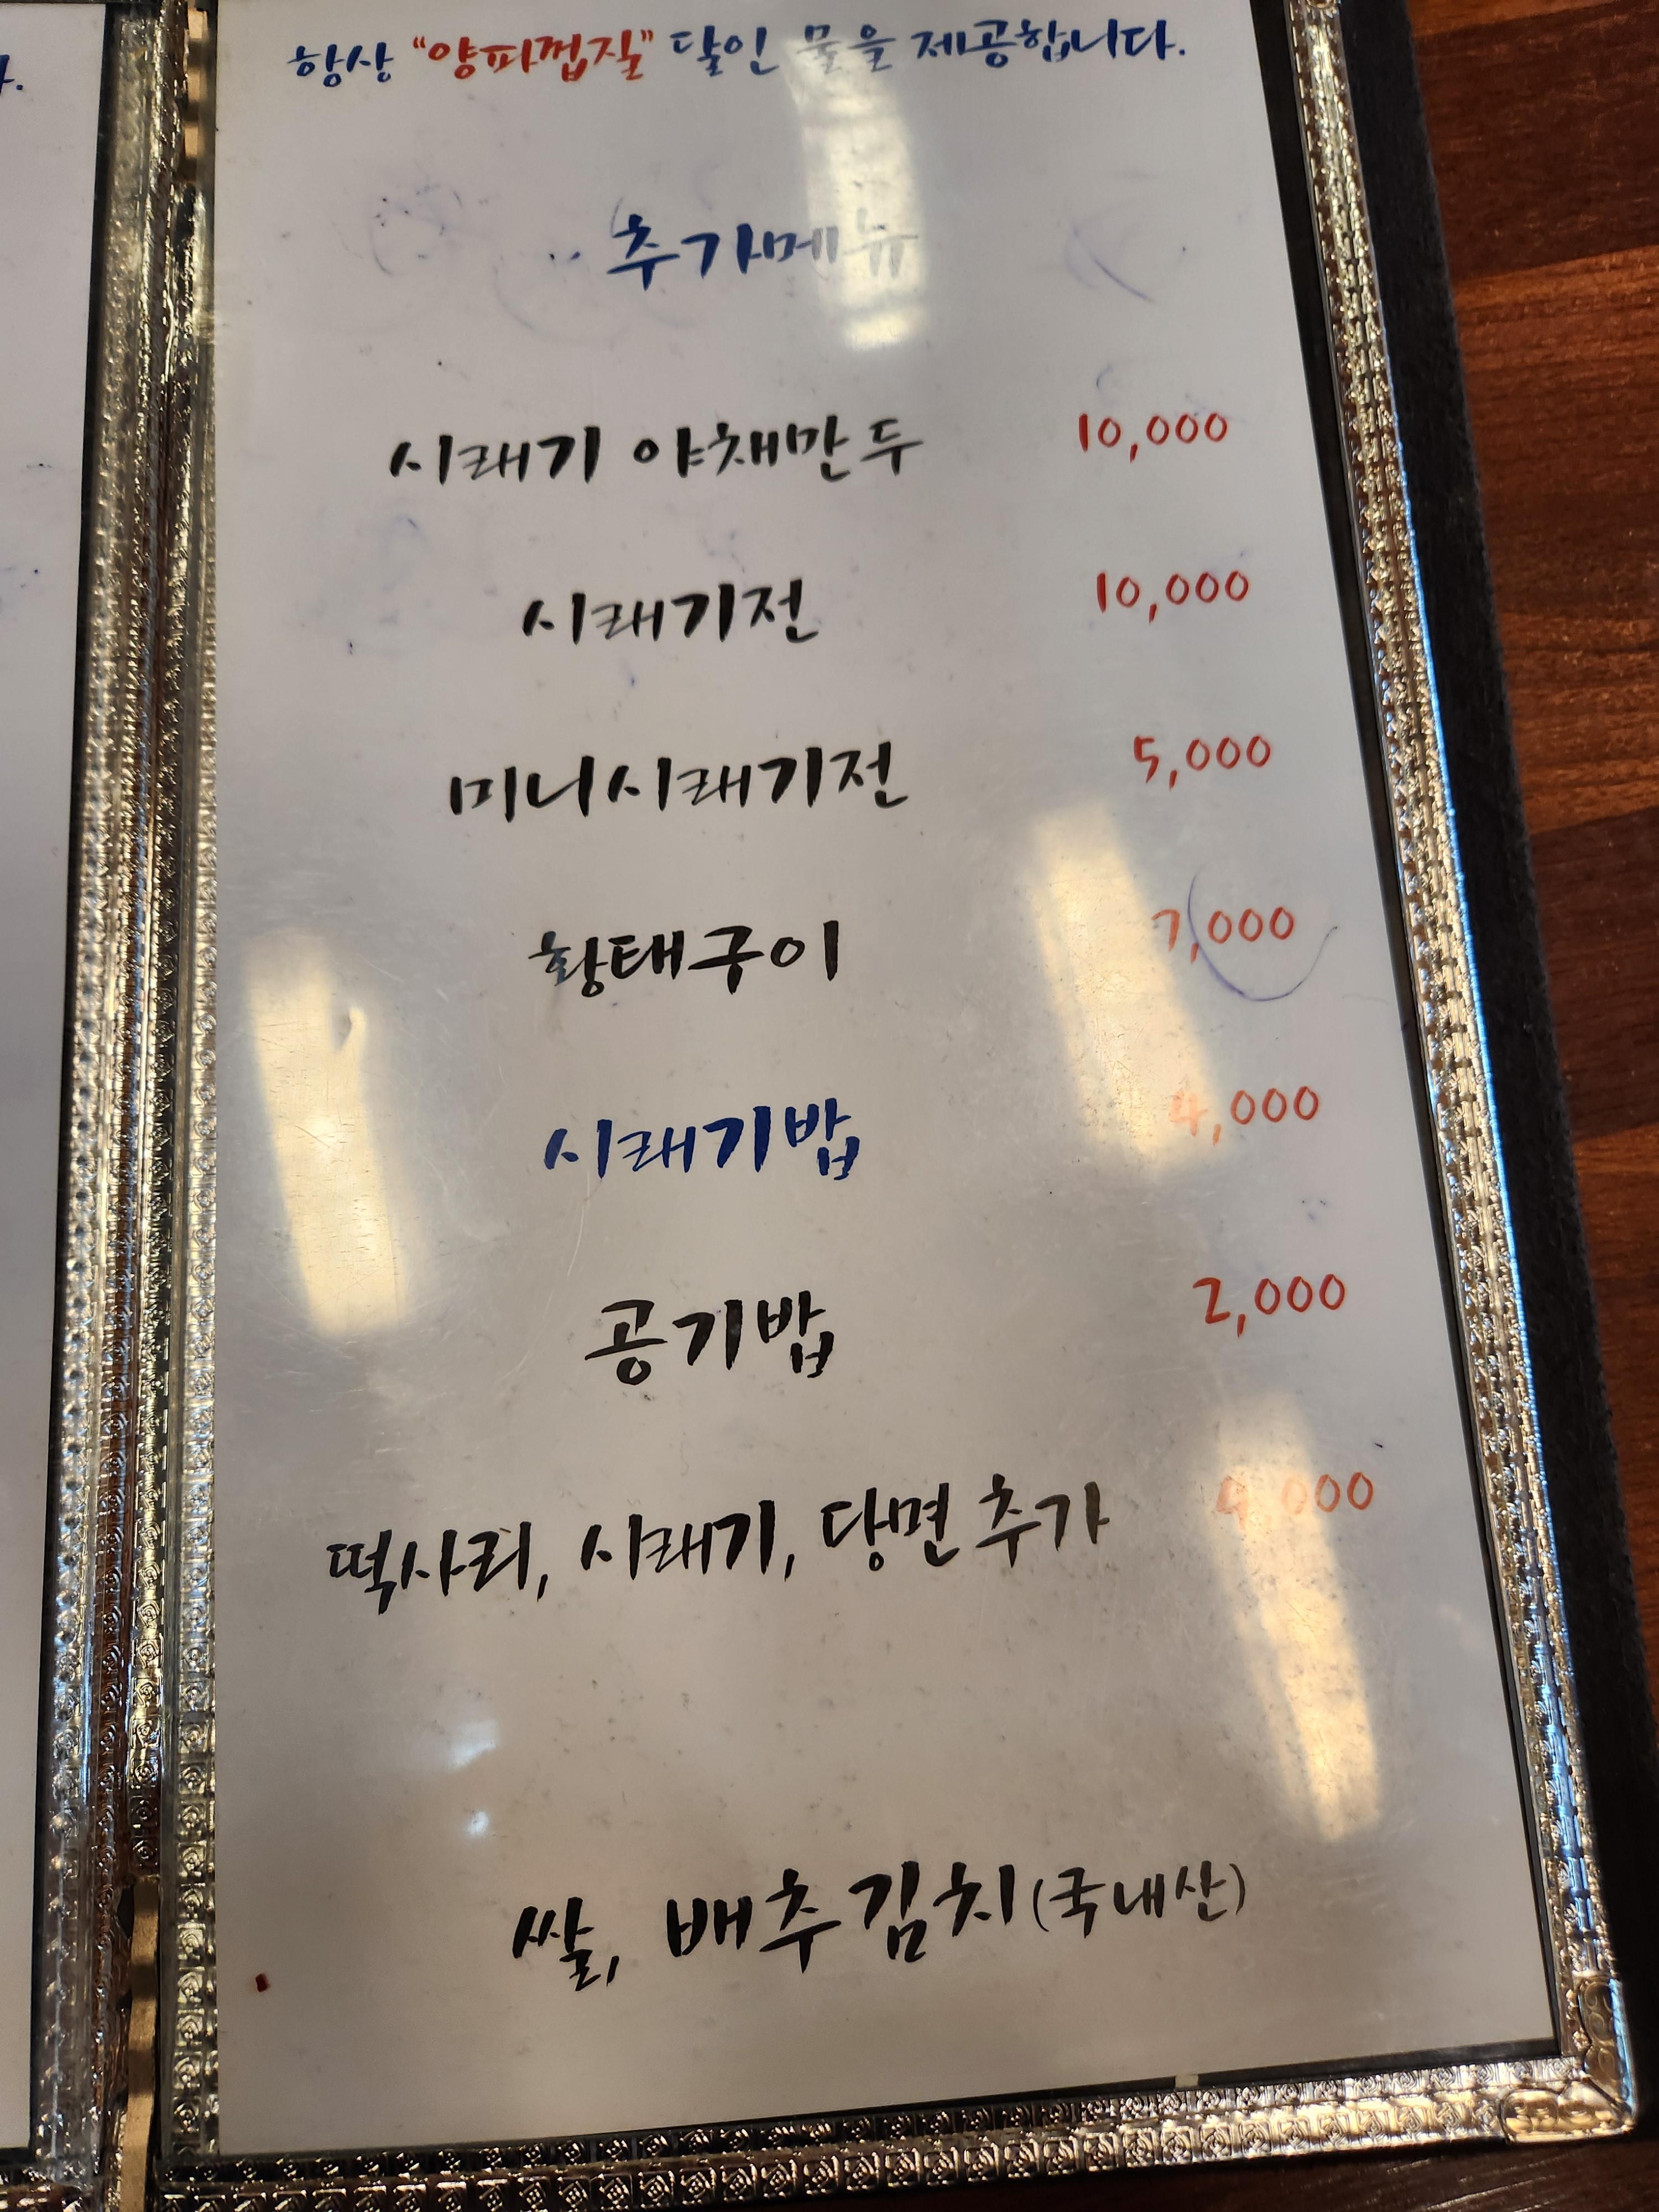 항상 "양파껍질" 달인 물을 제공합니다.
추가메뉴
시래기 야채만두 10,000
시래기전 10,000
미니시래기전 5,000
황태구이 7,000
시래기밥 4,000
공기밥 2,000
떡사리, 시래기, 당면추가 4,000
쌀, 배추김치(국내산)